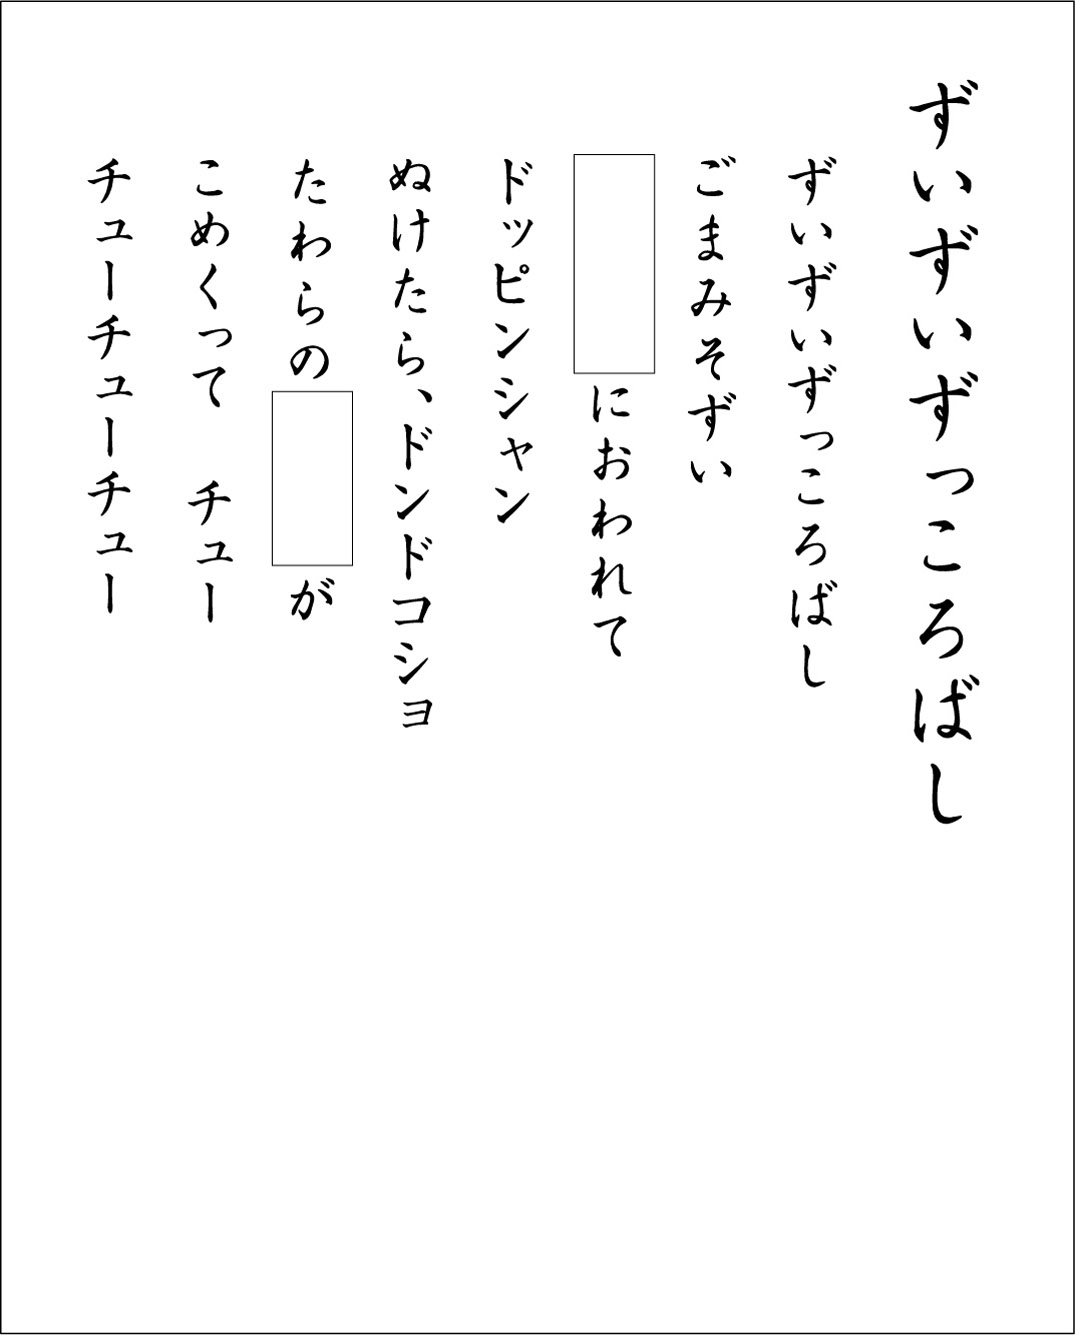 ずいずいずっころばし
ずいずいずっころばし
ごまみそずい
におわれて
ドッピンシャン
ぬけたら、ドンドコショ
たわらの が
こめくって チュー
チューチューチュー